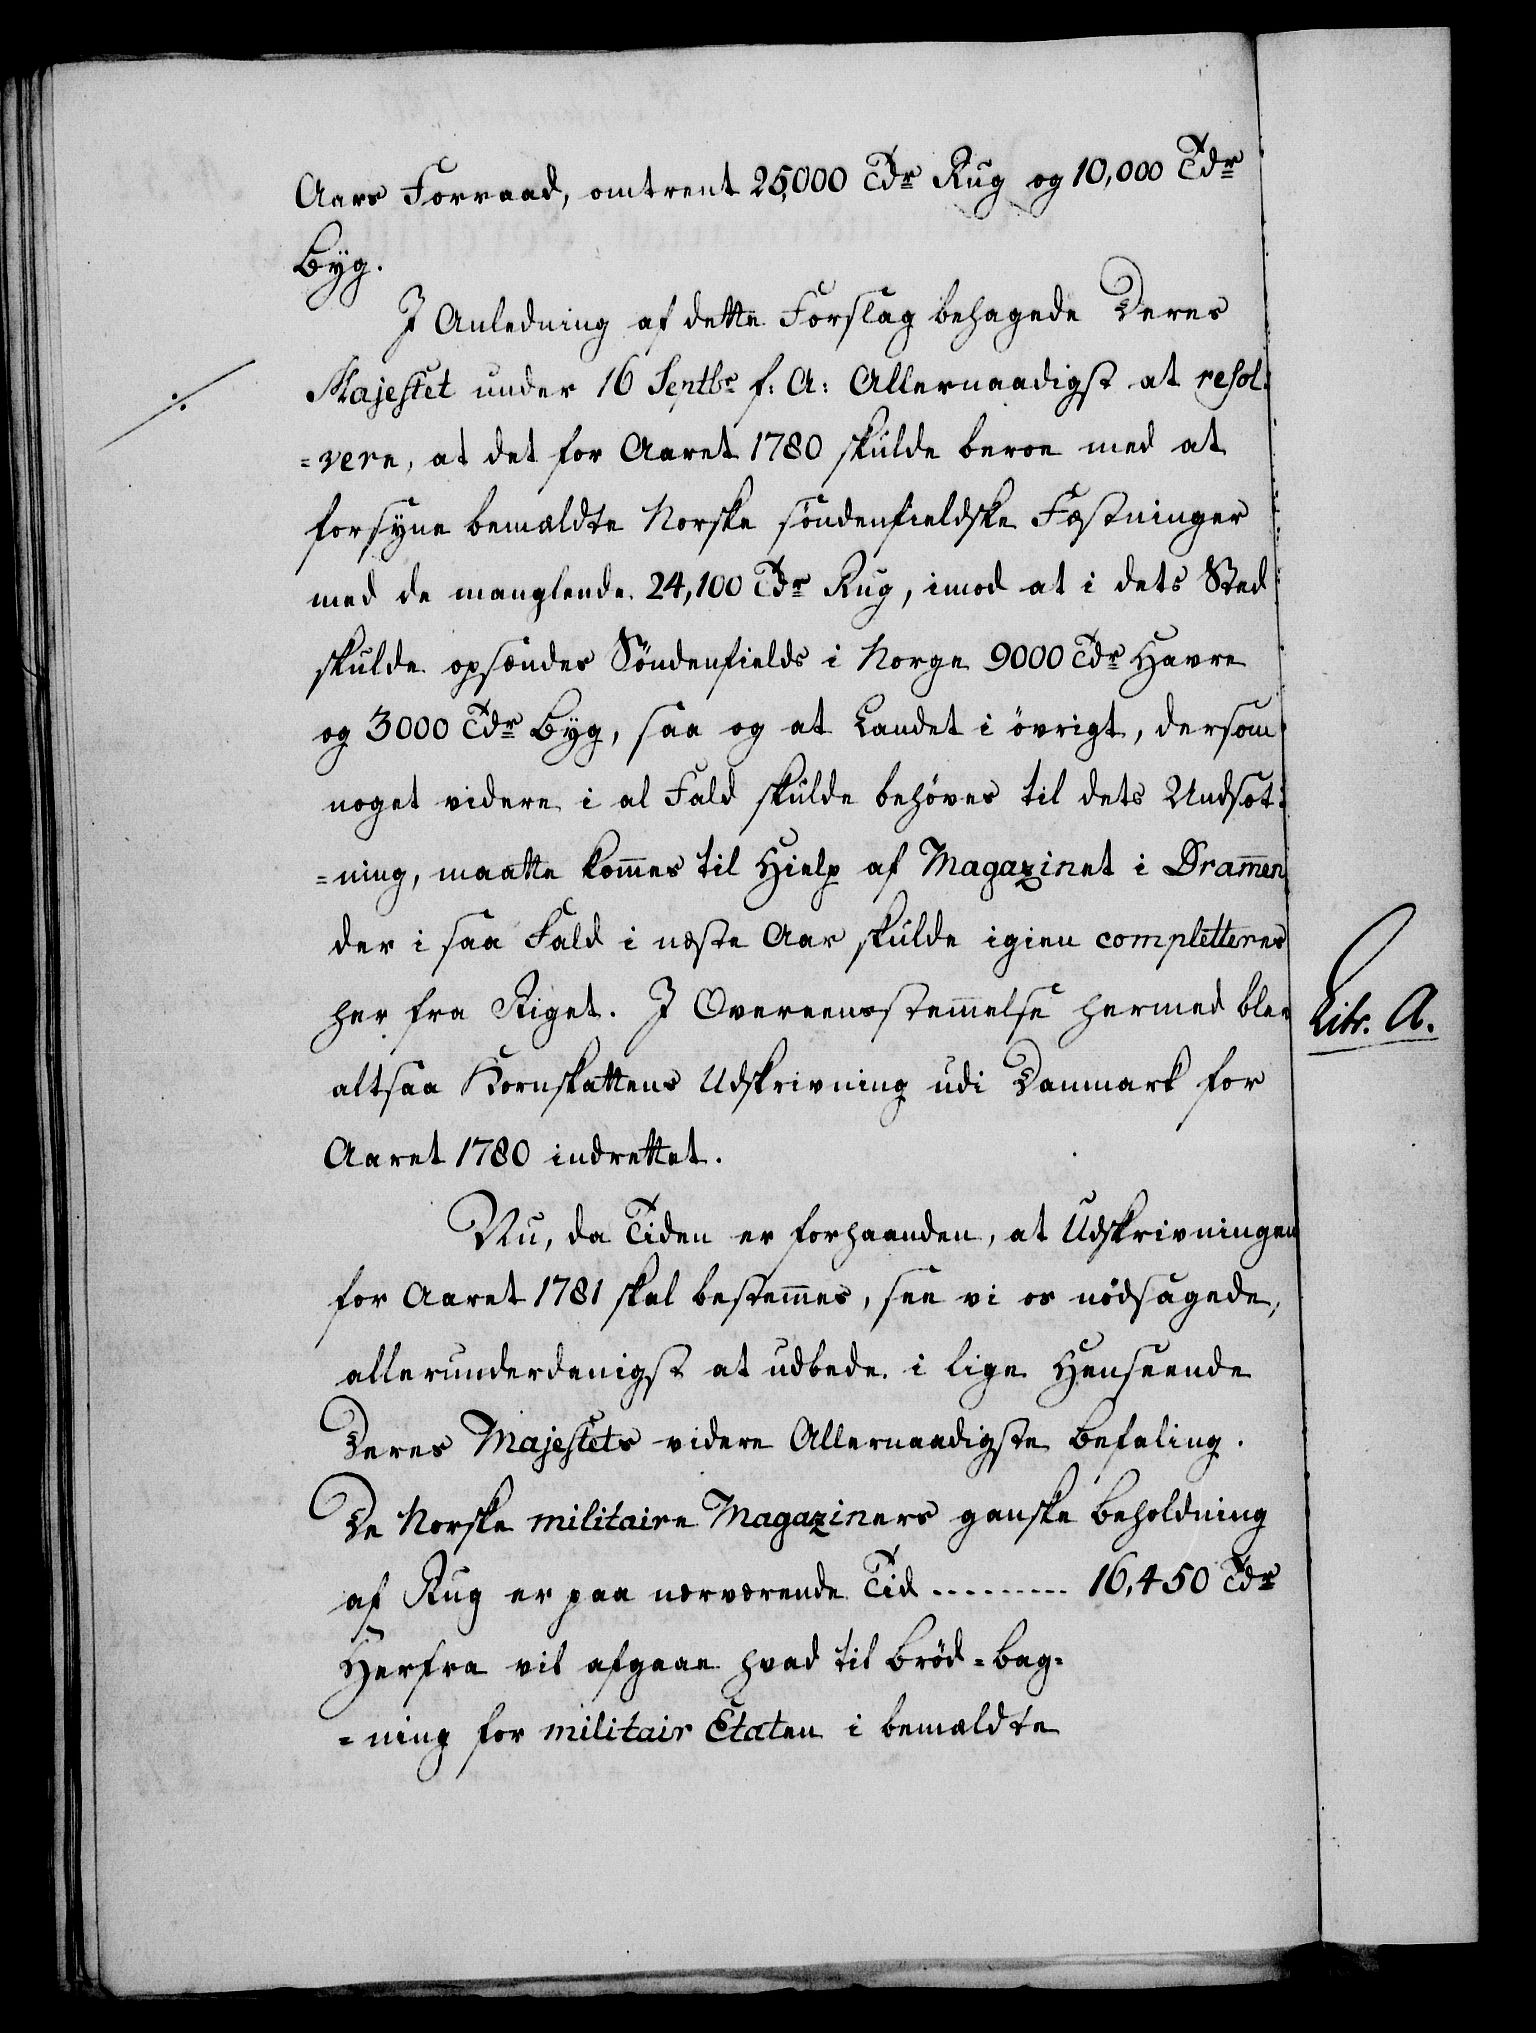 Aars Forraad, omtrent 25,000 Tdr Rug og 10,000 Tdr
Byg.
I Anledning af dette Forslag behagede Deres
Majestet under 16 Septbr f: A: Allernaadigst at resol-
=vere, at det for Aaret 1780 skulde beroe med at
forsyne bemældte Norske söndenfieldske Fæstninger
med de manglende 24,100 Tdr Rug, imod at i dets Sted
skulde opsendes Söndenfields i Norge 9000 Tdr Havre
og 3000 Tdr Byg, saa og at Landet i övrigt, dersom
noget videre i al Fald skulde behöves til dets Undsæt-
=ning, maatte kom̄es til Hielp af Magazinet i Dram̄en
der i saa Fald i næste Aar skulde igien completteres
her fra Riget. I Overeensstem̄else hermed blev
altsaa Kornskattens Udskrivning udi Danmark for
Aaret 1780 indrettet.
Litr. A.
Nu, da Tiden er forhaanden, at Udskrivningen
for Aaret 1781 skal bestem̄es, see vi os nödsagede,
allerunderdanigst at udbede i lige Henseende
Deres Majestets videre Allernaadigste Befaling.
De Norske militaire Magaziners ganske Beholdning
af Rug er paa nærværende Tid ......... 16,450 Tdr
Herfra vil afgaae hvad til Bröd=bag-
=ning for militair Etaten i bemældte